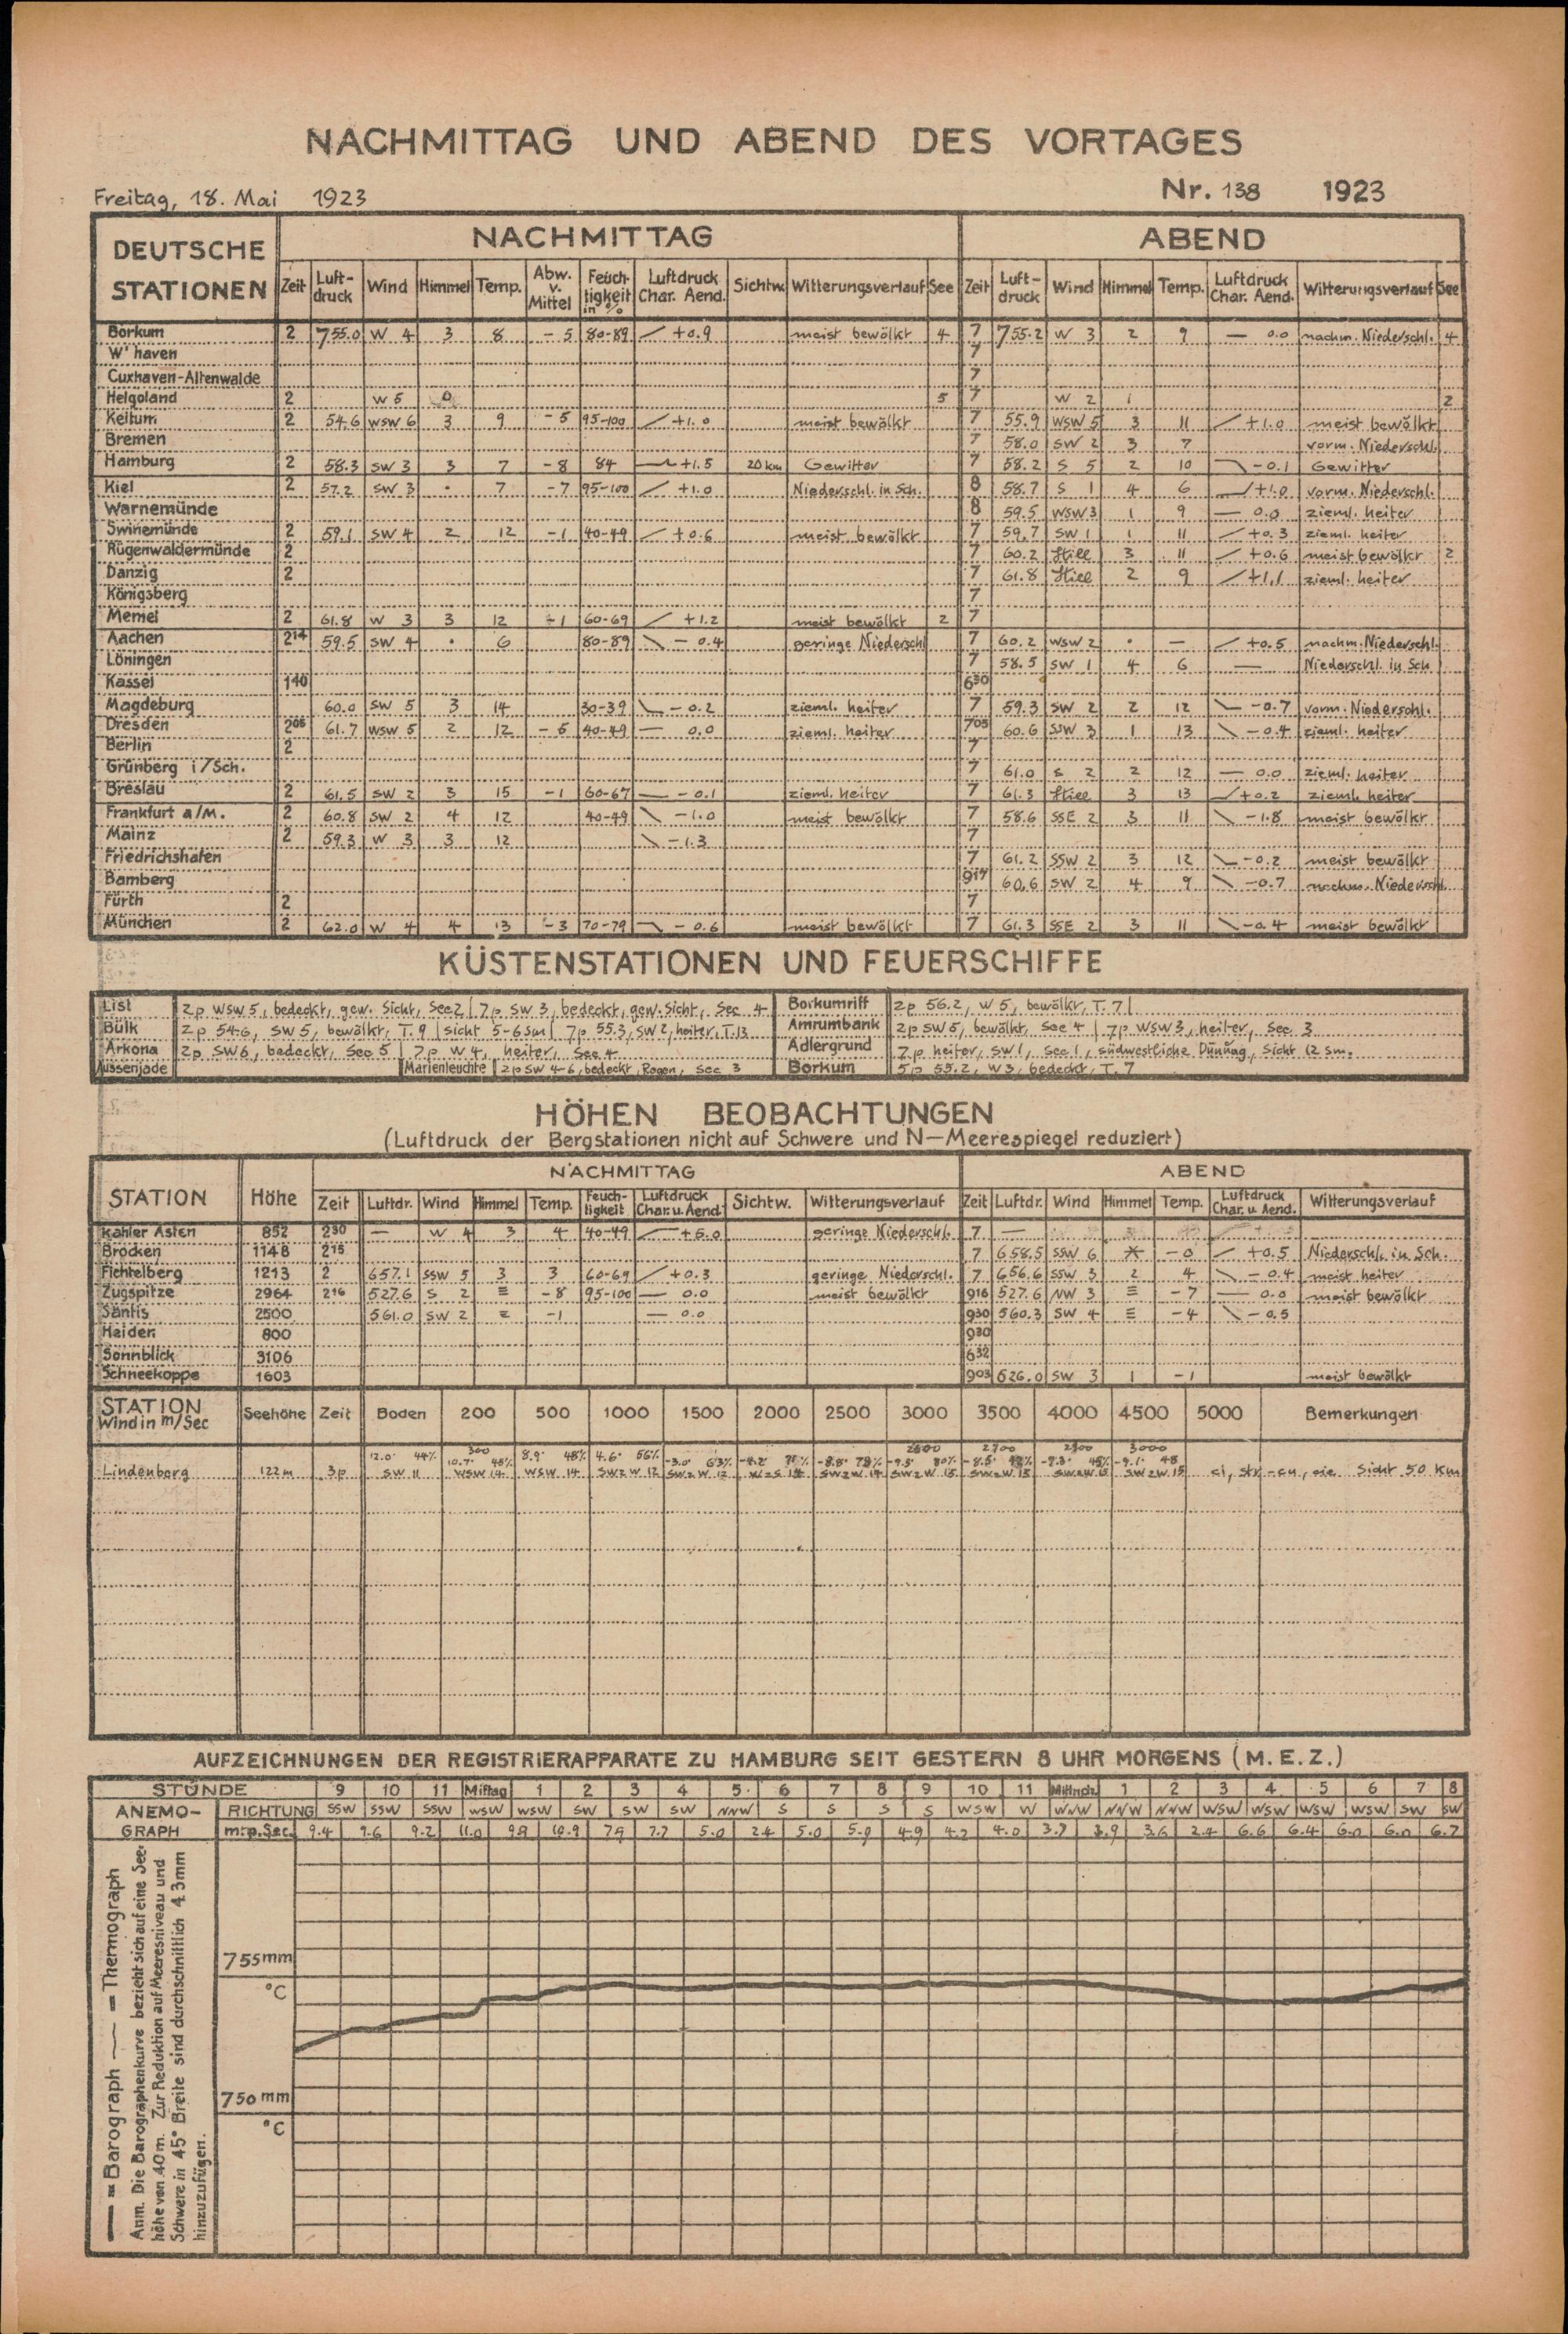 NACHMITTAG UND ABEND DES VORTAGES
Freitag, 18. Mai 1923 Nr. 138 1923
DEUTSCHE STATIONEN NACHMITTAG ABEND
Zeit Luft-druck Wind Himmel Temp. Abw. v. Mittel Feuch-tigkeit in % Luftdruck Char. Aend. Sichtw. Witterungsverlauf See Zeit Luft-druck Wind Himmel Temp. Luftdruck Char. Aend. Witterungsverlauf See
Borkum 2 755.0 W 4 3 8 -5 80-89 +0.9 meist bewölkt 4 7 755.2 W 3 2 9 — 0.0 nachm. Niederschl. 4
W'haven 7
Cuxhaven-Altenwalde 7
Helgoland 2 W 5 5 7 W 2 1 2
Keitum 2 54.6 WSW 6 3 9 -5 95-100 +1.0 meist bewölkt 7 55.9 WSW 5 3 11 +1.0 meist bewölkt
Bremen 7 58.0 SW 2 3 7 vorm. Niederschl.
Hamburg 2 58.3 SW 3 3 7 -8 84 +1.5 20 km Gewitter 7 58.2 S 5 2 10 -0.1 Gewitter
Kiel 2 57.2 SW 3 • 7 -7 95-100 +1.0 Niederschl. in Sch. 8 58.7 S 1 4 6 +1.0 vorm. Niederschl.
Warnemünde 8 59.5 WSW 3 1 9 — 0.0 zieml. heiter
Swinemünde 2 59.1 SW 4 2 12 -1 40-49 +0.6 meist bewölkt 7 59.7 SW 1 1 11 +0.3 zieml. heiter
Rügenwaldermünde 2 7 60.2 Still 3 11 +0.6 meist bewölkt 2
Danzig 2 7 61.8 Still 2 9 +1.1 zieml. heiter
Königsberg 7
Memel 2 61.8 W 3 3 12 -1 60-69 +1.2 meist bewölkt 2 7
Aachen 2¹⁴ 59.5 SW 4 • 6 80-89 -0.4 geringe Niederschl 7 60.2 WSW 2 • — +0.5 nachm. Niederschl.
Löningen 7 58.5 SW 1 4 6 — Niederschl. in Sch
Kassel 1⁴⁰ 6³⁰
Magdeburg 60.0 SW 5 3 14 30-39 -0.2 zieml. heiter 7 59.3 SW 2 2 12 -0.7 vorm. Niederschl.
Dresden 2⁰⁵ 61.7 WSW 5 2 12 -5 40-49 — 0.0 zieml. heiter 7⁰⁵ 60.6 SSW 3 1 13 -0.4 zieml. heiter
Berlin 2 7
Grünberg i/Sch. 7 61.0 S 2 2 12 — 0.0 zieml. heiter
Breslau 2 61.5 SW 2 3 15 -1 60-67 -0.1 zieml. heiter 7 61.3 Still 3 13 +0.2 zieml. heiter
Frankfurt a/M. 2 60.8 SW 2 4 12 40-49 -1.0 meist bewölkt 7 58.6 SSE 2 3 11 -1.8 meist bewölkt
Mainz 2 59.3 W 3 3 12 -1.3 7
Friedrichshafen 7 61.2 SSW 2 3 12 -0.2 meist bewölkt
Bamberg 9¹⁷ 60.6 SW 2 4 9 -0.7 nachm. Niederschl.
Fürth 2 7
München 2 62.0 W 4 4 13 -3 70-79 -0.6 meist bewölkt 7 61.3 SSE 2 3 11 -0.4 meist bewölkt
KÜSTENSTATIONEN UND FEUERSCHIFFE
List 2p WSW 5, bedeckt, gew. Sicht, See 2 | 7p SW 3, bedeckt, gew. Sicht, See 4 Borkumriff 2p 56.2, W 5, bewölkt, T. 7 |
Bülk 2p 54.6, SW 5, bewölkt, T. 9 | Sicht 5-6 sm | 7p 55.3, SW 2, heiter, T. 13 Amrumbank 2p SW 5, bewölkt, See 4 | 7p WSW 3, heiter, See 3
Arkona 2p SW 6, bedeckt, See 5 | 7p W 4, heiter, See 4 Adlergrund 7p heiter, SW 1, See 1, südwestliche Dünung, Sicht 12 sm.
Aussenjade Marienleuchte 2p SW 4-6, bedeckt, Regen, See 3 Borkum 5p 55.2, W 3, bedeckt, T. 7
HÖHEN BEOBACHTUNGEN
(Luftdruck der Bergstationen nicht auf Schwere und N-Meerespiegel reduziert)
STATION Höhe NACHMITTAG ABEND
Zeit Luftdr. Wind Himmel Temp. Feuch-tigkeit Luftdruck Char. u. Aend. Sichtw. Witterungsverlauf Zeit Luftdr. Wind Himmel Temp. Luftdruck Char. u. Aend. Witterungsverlauf
Kahler Asten 852 2³⁰ — W 4 3 4 40-49 +6.0 geringe Niederschl. 7 —
Brocken 1148 2¹⁵ 7 658.5 SSW 6 -0 +0.5 Niederschl. in Sch.
Fichtelberg 1213 2 657.1 SSW 5 3 3 60-69 +0.3 geringe Niederschl. 7 656.6 SSW 3 2 4 -0.4 meist heiter
Zugspitze 2964 2¹⁶ 527.6 S 2 ≡ -8 95-100 — 0.0 meist bewölkt 9¹⁶ 527.6 NW 3 ≡ -7 — 0.0 meist bewölkt
Säntis 2500 561.0 SW 2 ≡ -1 — 0.0 9³⁰ 560.3 SW 4 ≡ -4 -0.5
Heiden 800 9³⁰
Sonnblick 3106 6³²
Schneekoppe 1603 9⁰³ 626.0 SW 3 1 -1 meist bewölkt
STATION Wind in m/Sec Seehöhe Zeit Boden 200 500 1000 1500 2000 2500 3000 3500 4000 4500 5000 Bemerkungen
300 2600 2700 2900 3000
12.0° 44% 10.7° 45% 8.9° 48% 4.6° 56% -3.0° 63% 
Lindenberg 122 m 3p SW 11 WSW 14 WSW 14 SWzW 12 SWzW 12 SWzW 14 SWzW 15 SWzW 15 SWzW 15 SWzW 15 Sicht 50 Km
AUFZEICHNUNGEN DER REGISTRIERAPPARATE ZU HAMBURG SEIT GESTERN 8 UHR MORGENS (M. E. Z.)
STUNDE 9 10 11 Mittag 1 2 3 4 5 6 7 8 9 10 11 Mittnch. 1 2 3 4 5 6 7 8
ANEMO-GRAPH RICHTUNG SSW SSW SSW WSW WSW SW SW SW NNW S S S S WSW W WNW NNW NNW WSW WSW WSW WSW SW SW
m. p. Sec. 9.4 9.6 9.2 11.0 9.8 10.9 7.9 7.7 5.0 2.4 5.0 5.9 4.9 4.2 4.0 3.7 3.9 3.6 2.4 6.6 6.4 6.0 6.0 6.7
— = Barograph — = Thermograph
Anm. Die Barographenkurve bezieht sich auf eine See-
höhe von 40 m. Zur Reduktion auf Meeresniveau und
Schwere in 45° Breite sind durchschnittlich 4.3 mm
hinzuzufügen.
755 mm
°C
750 mm
°C